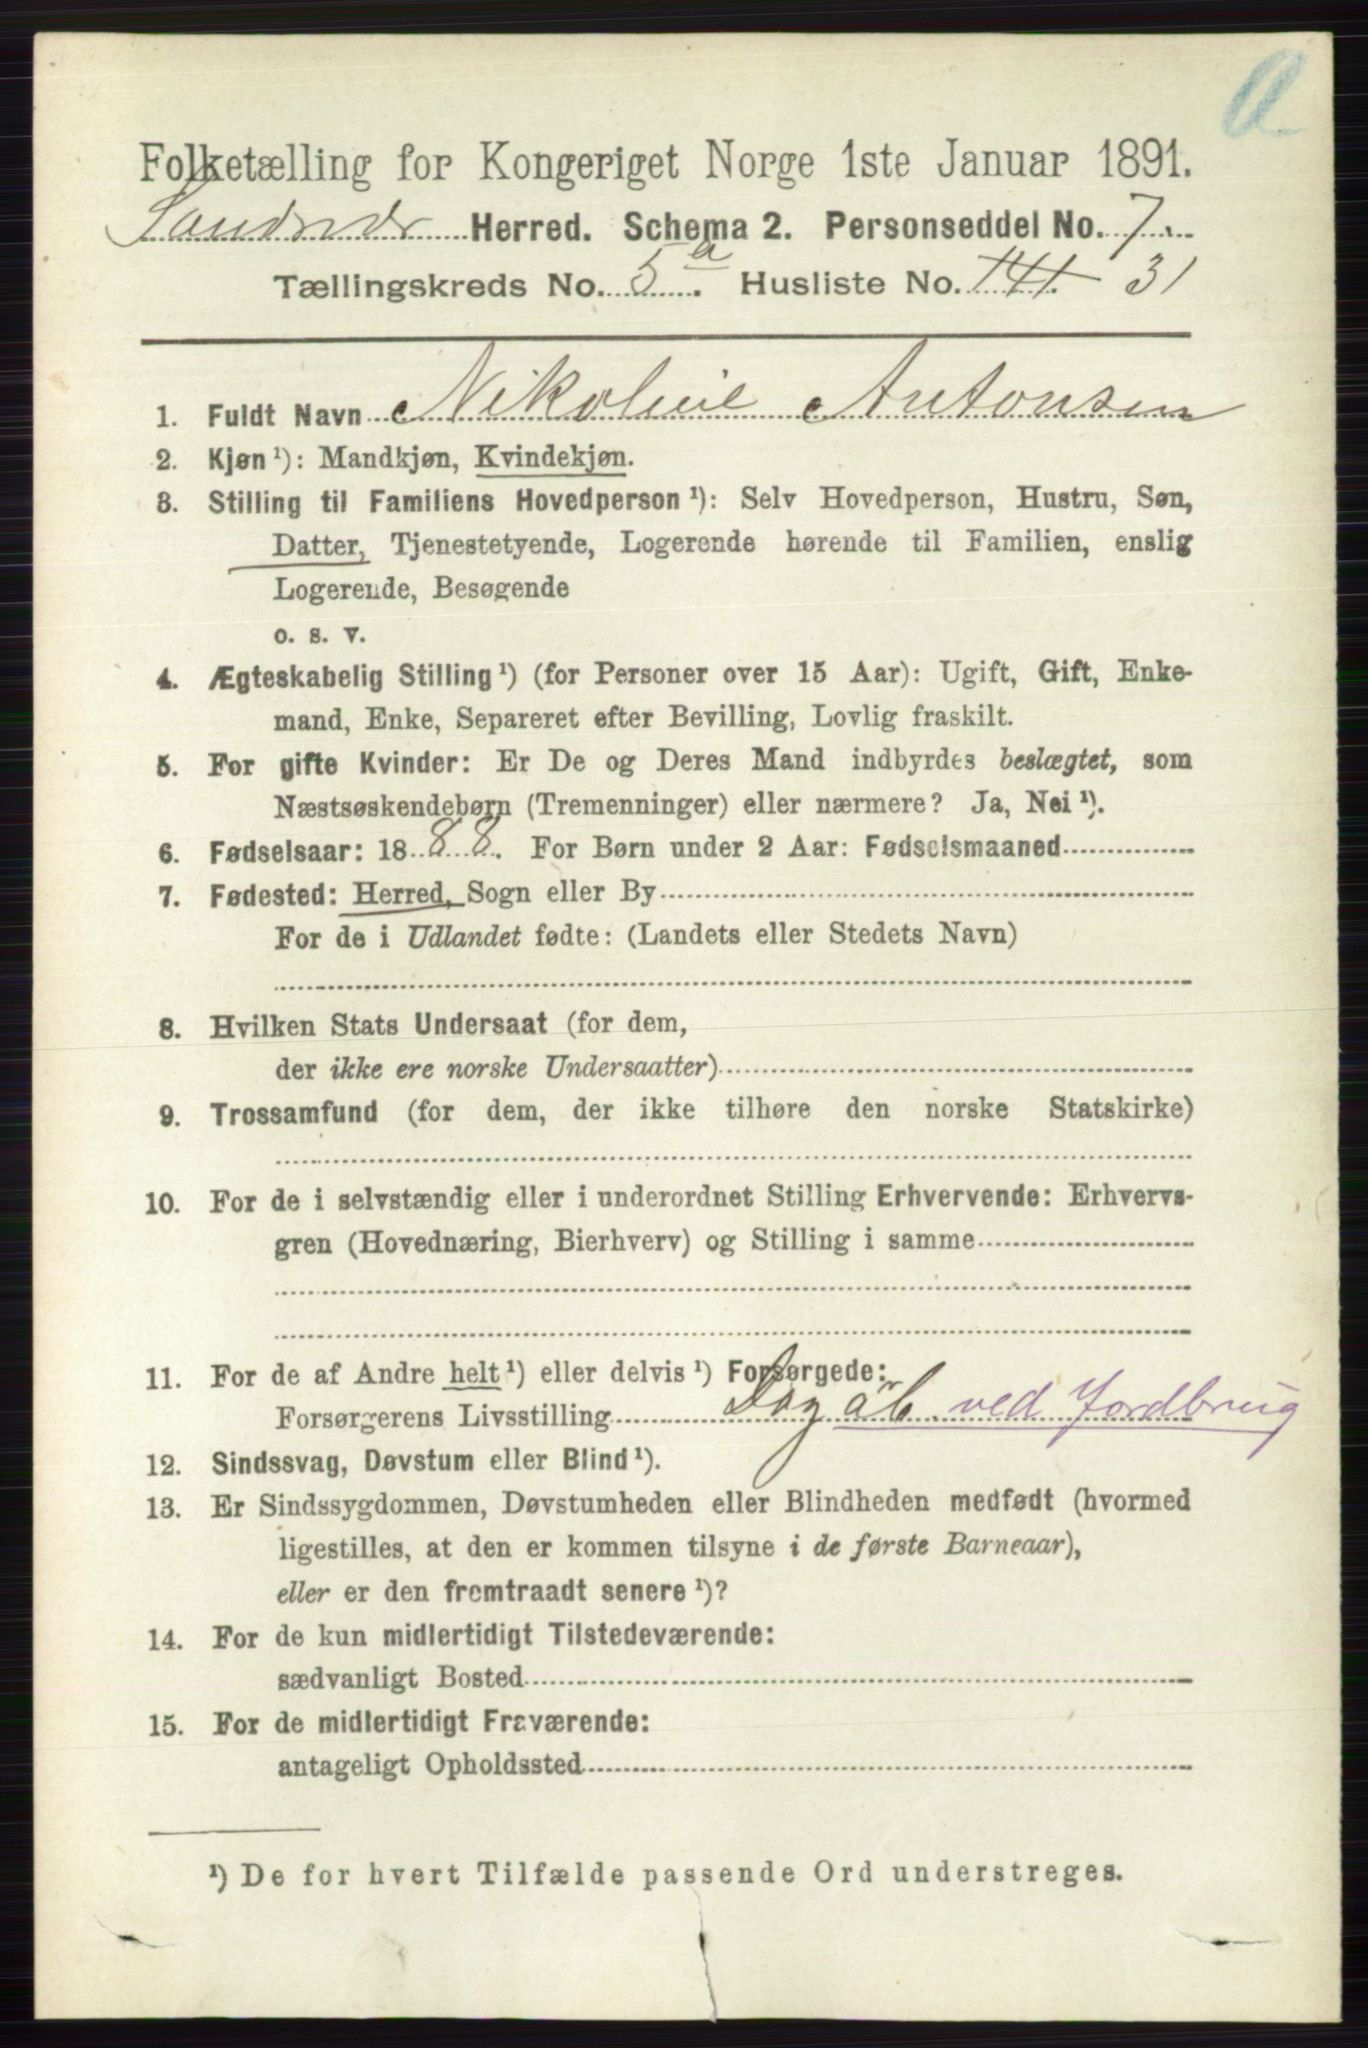 a
Folketælling for Kongeriget Norge 1ste Januar 1891.
Sandsvær Herred. Schema 2. Personseddel No. 7.
Tællingskreds No. 5a. Husliste No. 141. 31
1. Fuldt Navn Nikoline Antonsen
2. Kjøn ¹): Mandkjøn, Kvindekjøn.
3. Stilling til Familiens Hovedperson ¹): Selv Hovedperson, Hustru, Søn,
Datter, Tjenestetyende, Logerende hørende til Familien, enslig
Logerende, Besøgende
o. s. v.
4. Ægteskabelig Stilling ¹) (for Personer over 15 Aar): Ugift, Gift, Enke-
mand, Enke, Separeret efter Bevilling, Lovlig fraskilt.
5. For gifte Kvinder: Er De og Deres Mand indbyrdes beslægtet, som
Næstsøskendebørn (Tremenninger) eller nærmere? Ja, Nei ¹).
6. Fødselsaar: 1888. For Børn under 2 Aar: Fødselsmaaned
7. Fødested: Herred, Sogn eller By
For de i Udlandet fødte: (Landets eller Stedets Navn)
8. Hvilken Stats Undersaat (for dem,
der ikke ere norske Undersaatter)
9. Trossamfund (for dem, der ikke tilhøre den norske Statskirke)
10. For de i selvstændig eller i underordnet Stilling Erhvervende: Erhvervs-
gren (Hovednæring, Bierhverv) og Stilling i samme
11. For de af Andre helt ¹) eller delvis ¹) Forsørgede:
Forsørgerens Livsstilling Dag arb. ved Jordbrug
12. Sindssvag, Døvstum eller Blind ¹).
13. Er Sindssygdommen, Døvstumheden eller Blindheden medfødt (hvormed
ligestilles, at den er kommen tilsyne i de første Barneaar),
eller er den fremtraadt senere ¹)?
14. For de kun midlertidigt Tilstedeværende:
sædvanligt Bosted
15. For de midlertidigt Fraværende:
antageligt Opholdssted
¹) De for hvert Tilfælde passende Ord understreges.